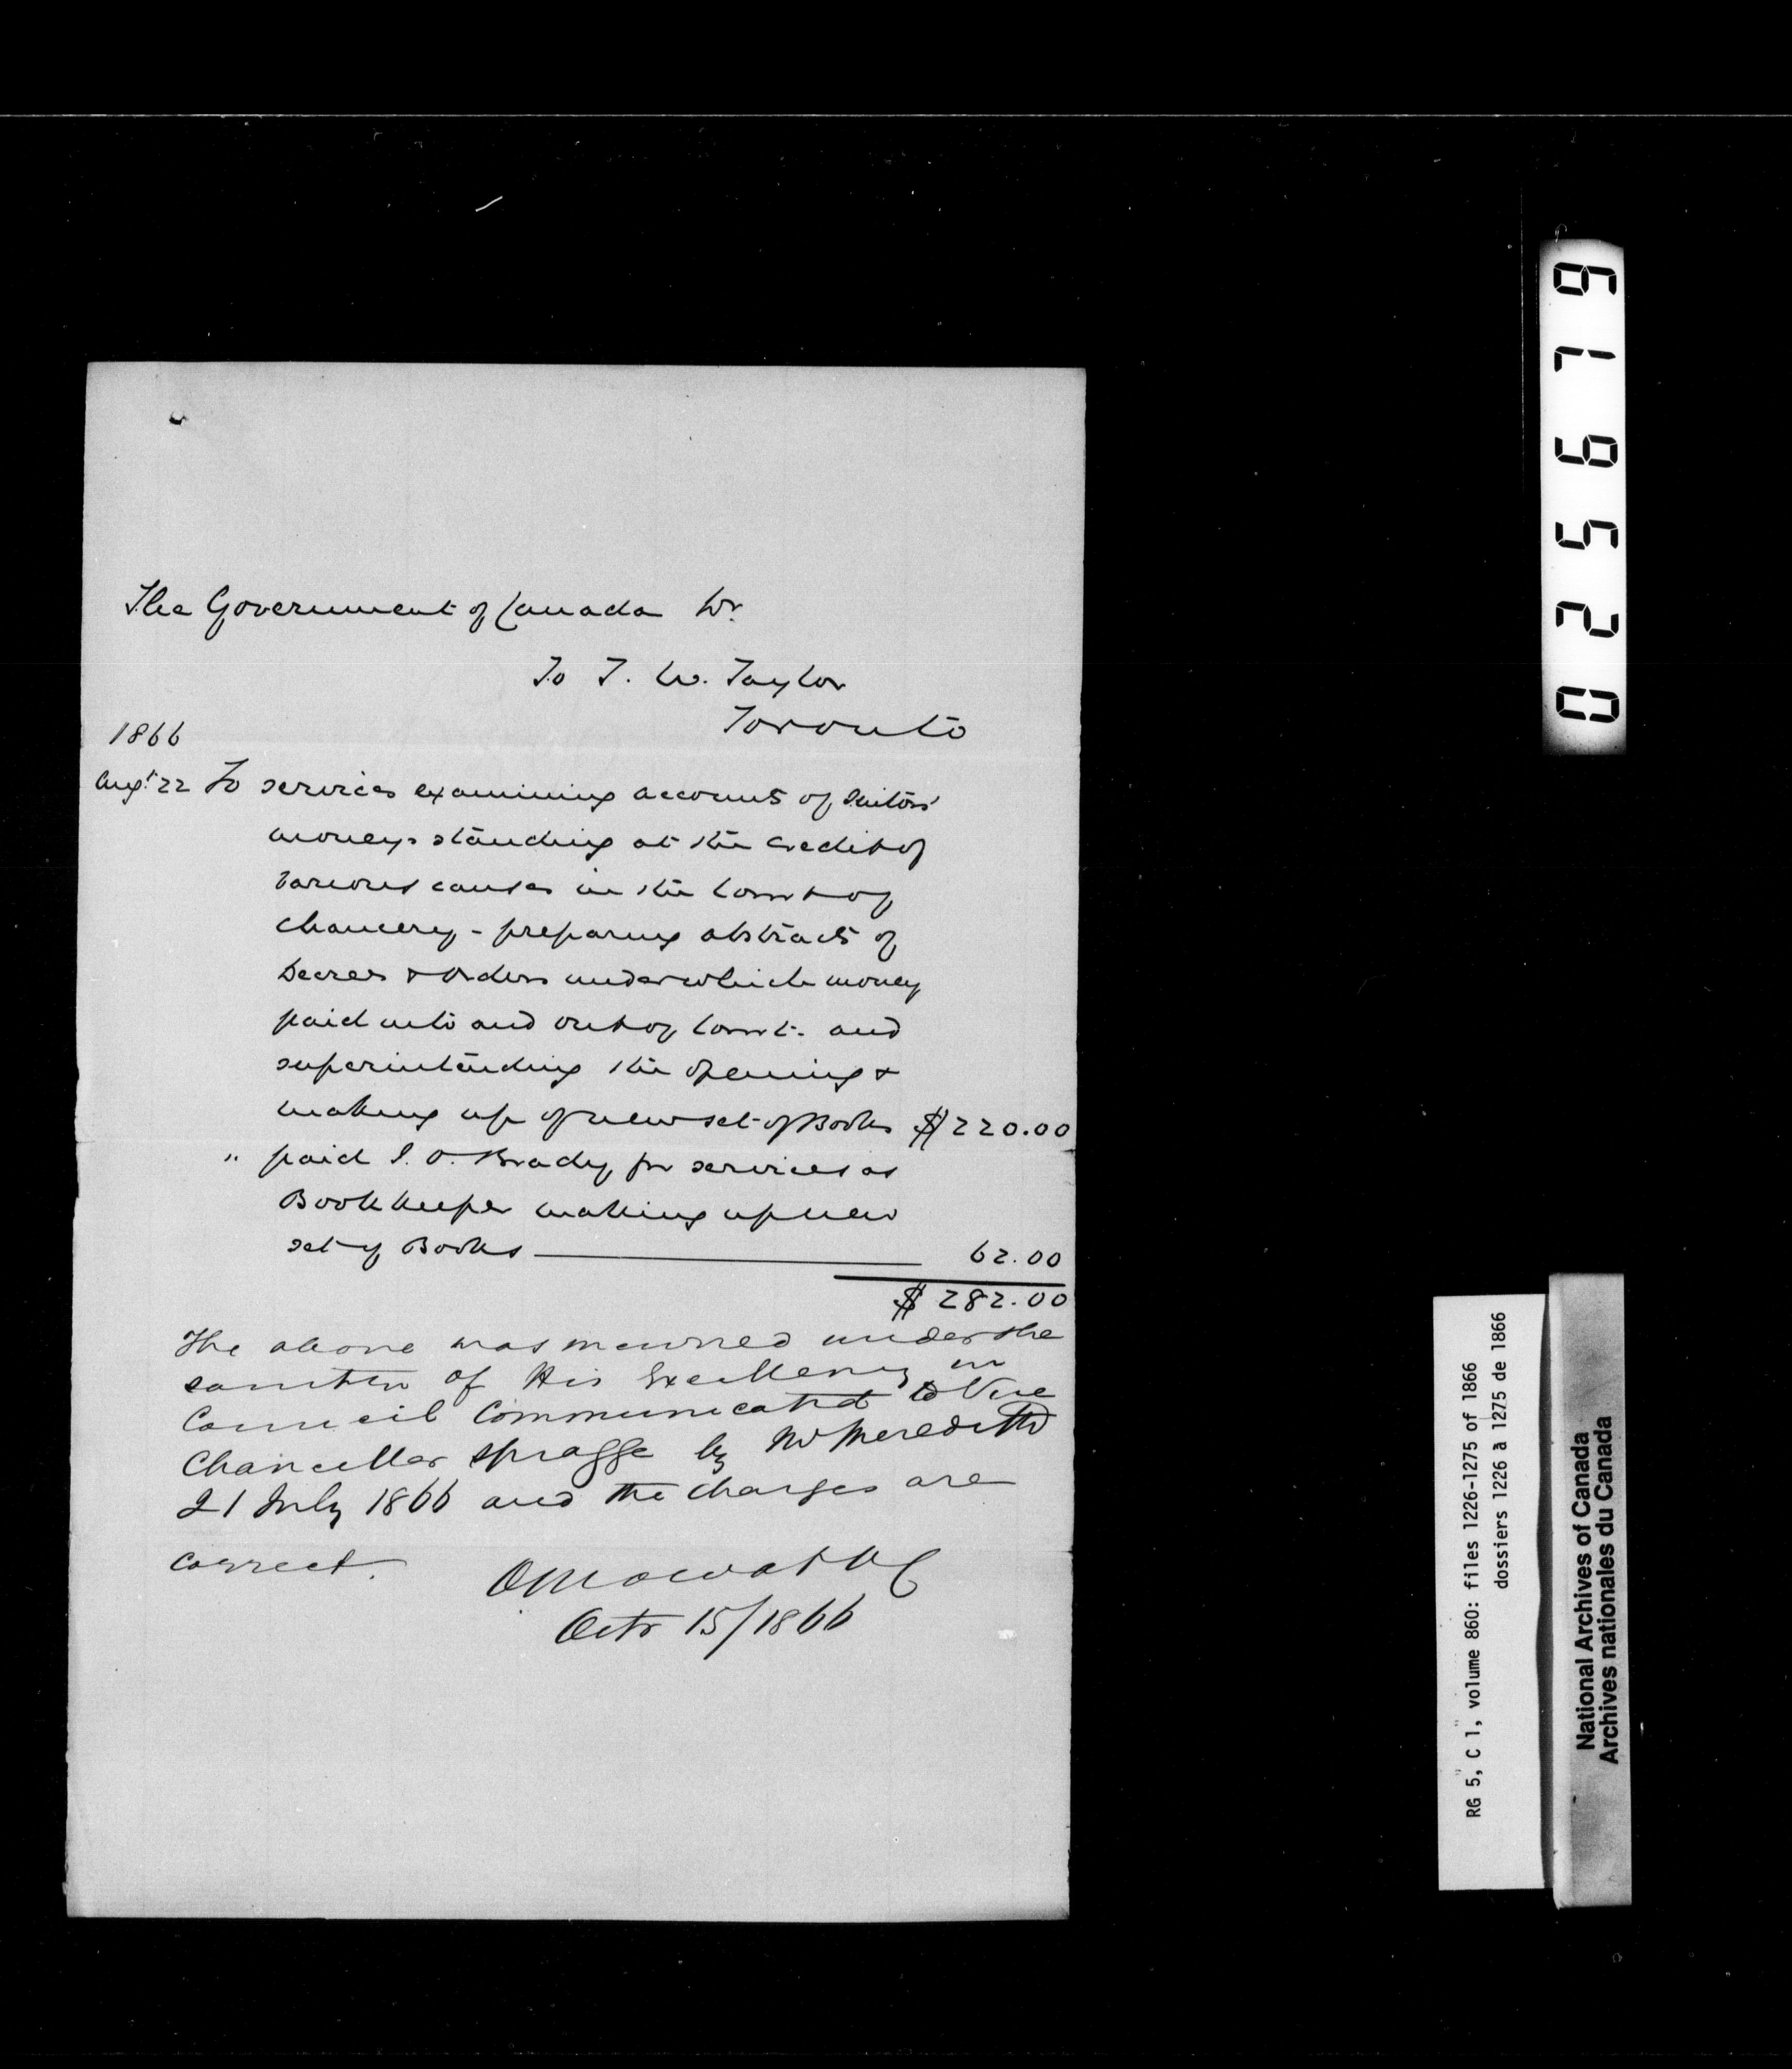 The Government of Canada Dr.
To T. W. Taylor
Toronto
1866
Augt 22 To services examining accounts of Suitors'
moneys standing at the credit of
various causes in the Court of
Chancery - preparing abstracts of
Decrees & Orders under which money
paid into and out of Court. and
superintending the opening &
making up of new set of Books $220.00
" paid J. O. Brady, for services as
Book keeper making up new
set of Books 62.00
$ 282.00
The above was incurred under the
sanction of His Excellency in
Council Communicated to Vice
Chancellor Spragge by Mr Meredith
21 July 1866 and the charges are
correct.
O Mowat VC
Octr 15/1866
025619
RG 5, C 1, volume 860: files 1226-1275 of 1866
dossiers 1226 à 1275 de 1866
National Archives of Canada
Archives nationales du Canada